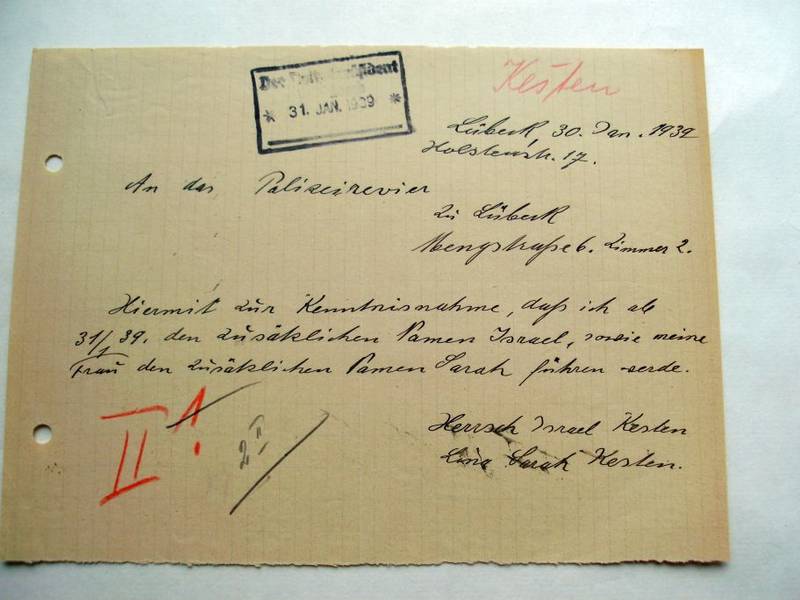 Der Polizeipräsident
* 31. JAN. 1939 *
Kesten
Lübeck, 30. Jan. 1939
Holstenstr. 17.
An das Polizeirevier
zu Lübeck
Mengstraße 6. Zimmer 2.
Hiermit zur Kenntnisnahme, daß ich ab
31/1 39. den zusätzlichen Namen Israel, sowie meine
Frau den zusätzlichen Namen Sarah führen werde.
Herrsch Israel Kesten
Lina Sarah Kesten.
II!
2 II